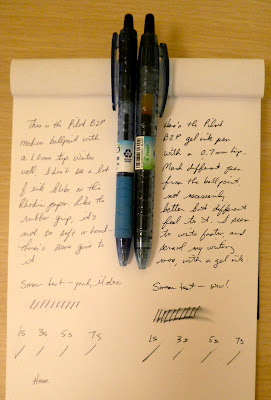 This is the Pilot B2P
medium ballpoint with
a 1.0mm tip. Writes
well. I don't see a lot
of ink blobs on this
Rhodia paper. Like the
rubber grip, it's
not so soft or hard –
there's some give to
it.
Smear test – yeah, it does.
1s 3s 5s 7s
Hmm
Here's the Pilot
B2P gel ink pen
with a 0.7mm tip.
Much different pen
from the ballpoint.
not necessarily
better but different
feel to it. I seem
to write faster, and
scrawl my writing
more, with a gel ink.
Smear test – wow!
1s 3s 5s 7s